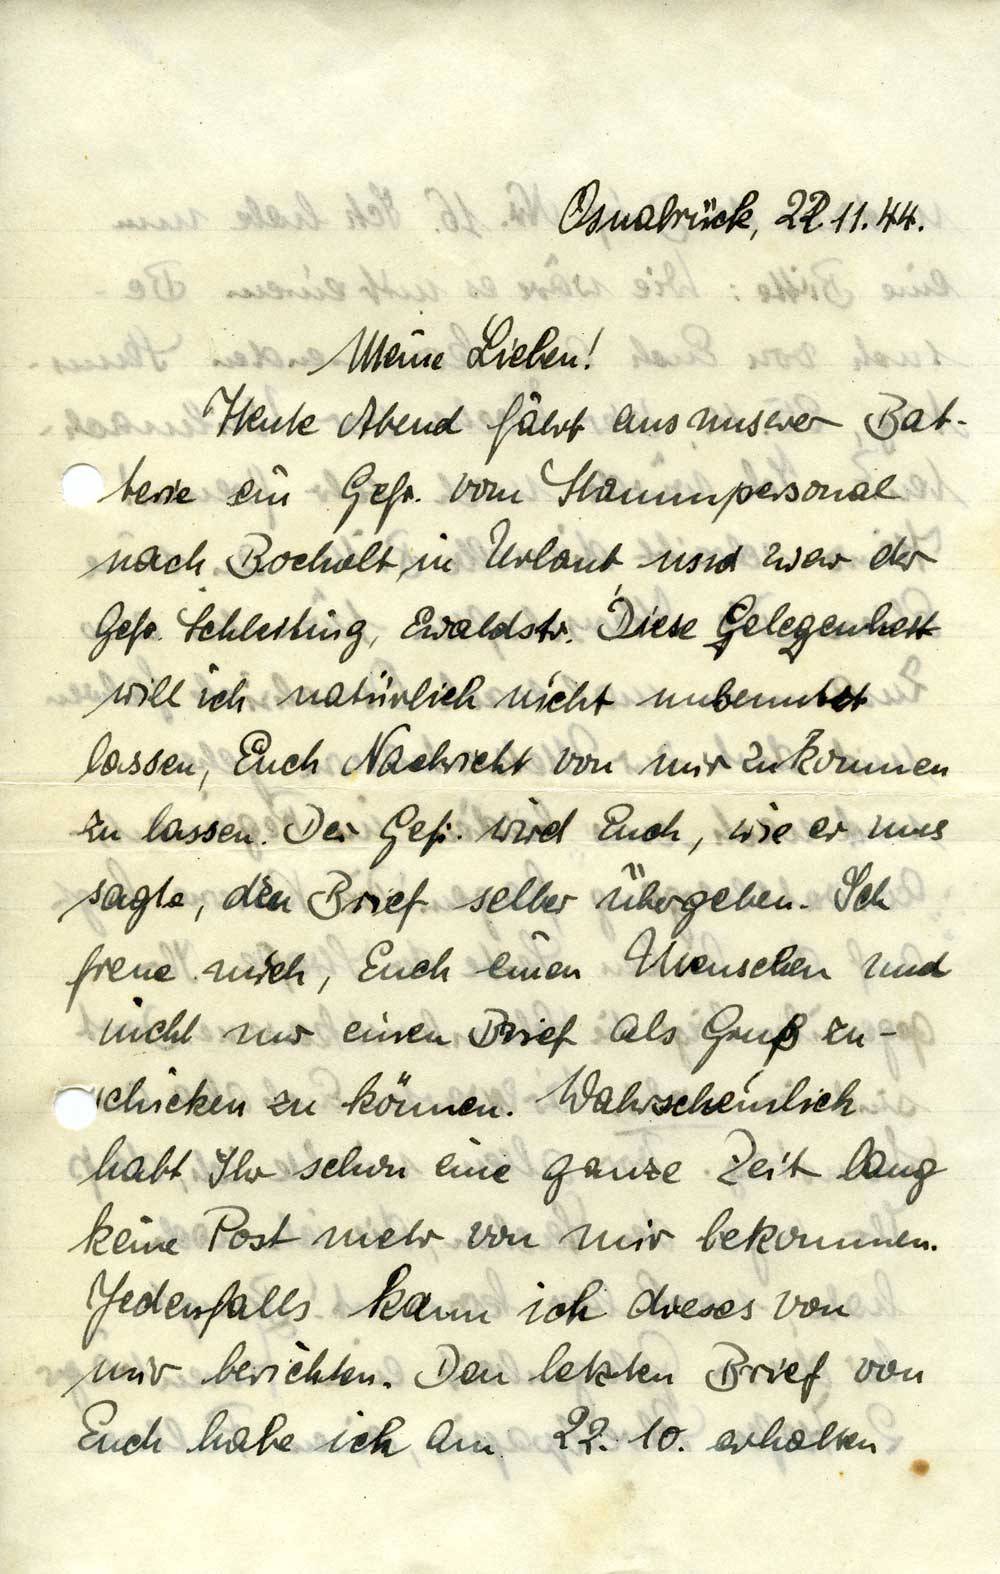 Osnabrück, 22.11.44.
Meine Lieben!
Heute Abend fährt aus unserer Bat-
terie ein Gefr. vom Stammpersonal
nach Bocholt in Urlaub, und zwar der
Gefr. Schleiting, Ewaldstr. Diese Gelegenheit
will ich natürlich nicht unbenutzt
lassen, Euch Nachricht von mir zukommen
zu lassen. Der Gefr. wird Euch, wie er uns
sagte, den Brief selber übergeben. Ich
freue mich, Euch einen Menschen und
nicht nur einen Brief als Gruß zu-
schicken zu können. Wahrscheinlich
habt Ihr schon eine ganze Zeit lang
keine Post mehr von mir bekommen.
Jedenfalls kann ich dieses von
mir berichten. Den letzten Brief von
Euch habe ich am 22. 10. erhalten